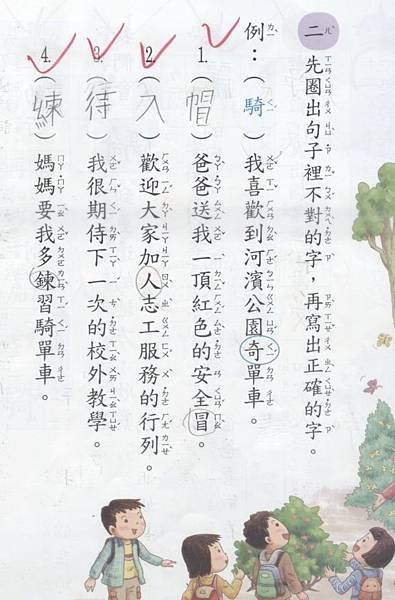 二 先圈出句子裡不對的字，再寫出正確的字。
例：（騎）我喜歡到河濱公園奇單車。
1.（帽）爸爸送我一頂紅色的安全冒。
2.（入）歡迎大家加人志工服務的行列。
3.（待）我很期侍下一次的校外教學。
4.（練）媽媽要我多鍊習騎單車。